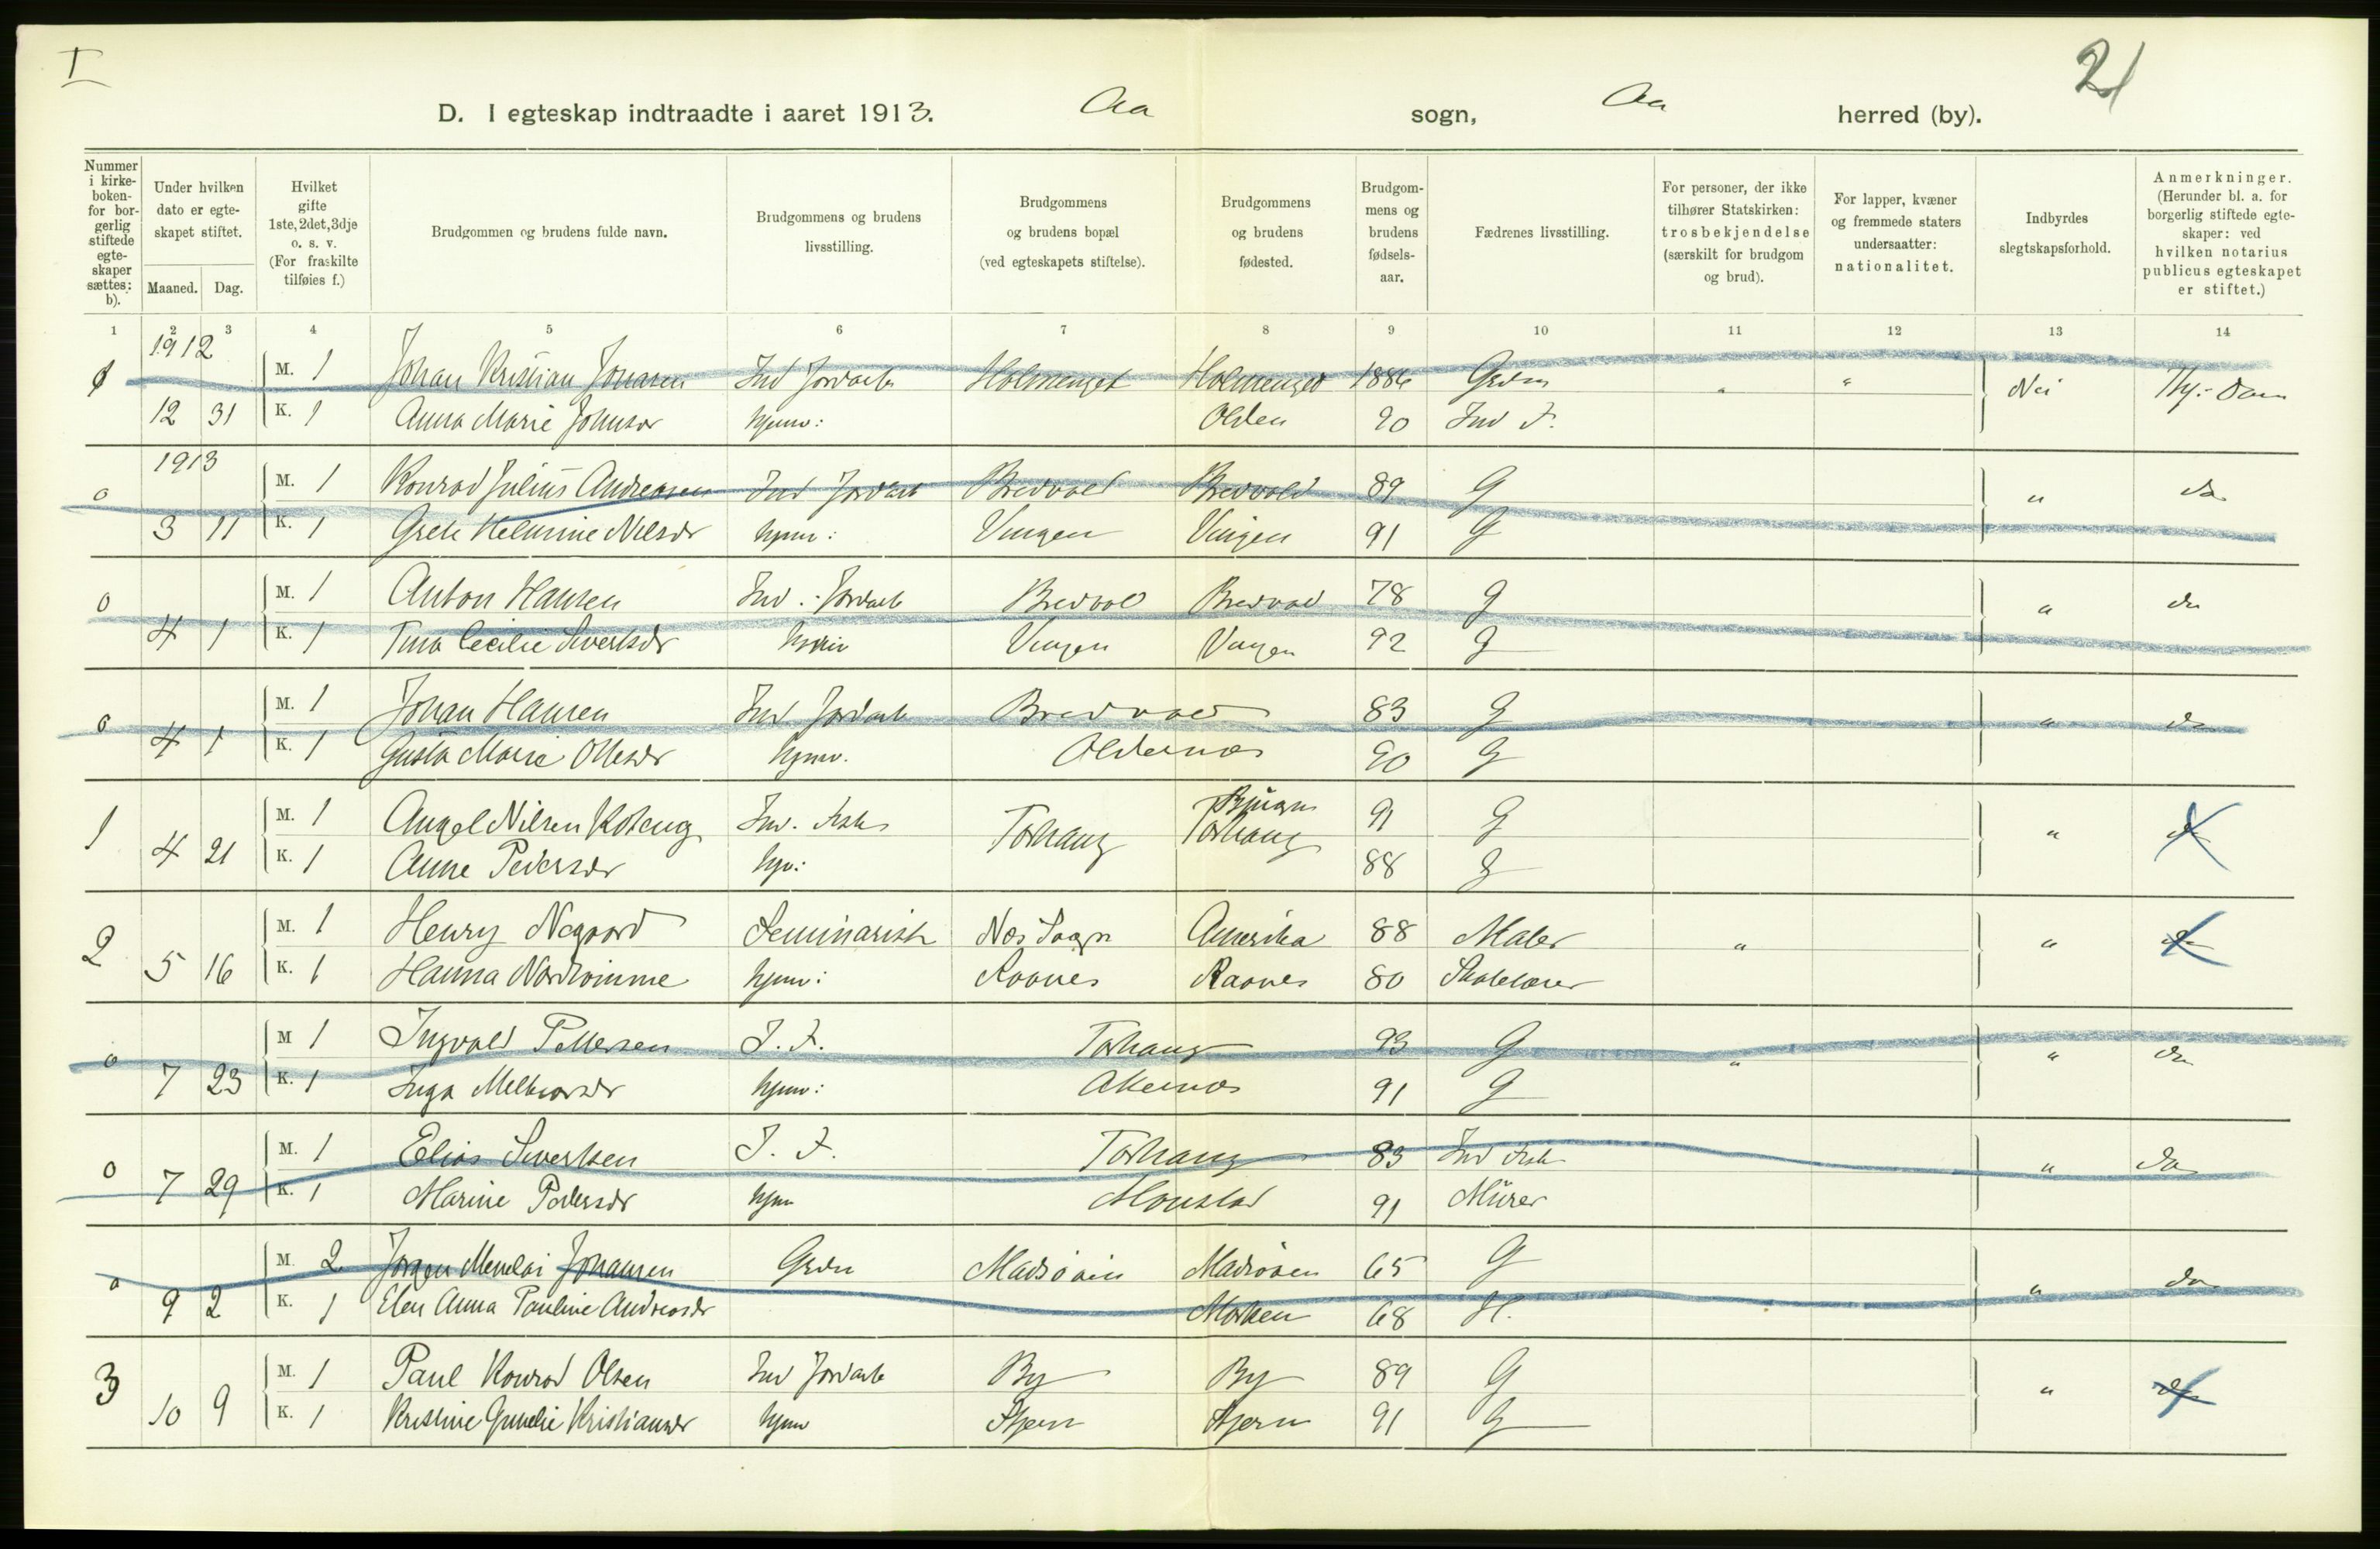 I
21
D. I egteskap indtraadte i aaret 1913. Aa sogn, Aa herred (by).
Nummer i kirkeboken- for borgerlig stiftede egteskaper sættes: b).
Under hvilken dato er egteskapet stiftet.
Maaned. Dag.
Hvilket gifte 1ste, 2det, 3dje o. s. v. (For fraskilte tilføies f.)
Brudgommen og brudens fulde navn.
Brudgommens og brudens livsstilling.
Brudgommens og brudens bopæl (ved egteskapets stiftelse).
Brudgommens og brudens fødested.
Brudgommens og brudens fødselsaar.
Fædrenes livsstilling.
For personer, der ikke tilhører Statskirken: trosbekjendelse (særskilt for brudgom og brud).
For lapper, kvæner og fremmede staters undersaatter: nationalitet.
Indbyrdes slegtskapsforhold.
Anmerkninger. (Herunder bl. a. for borgerlig stiftede egteskaper: ved hvilken notarius publicus egteskapet er stiftet.)
1 2 3 4 5 6 7 8 9 10 11 12 13 14
1912
M. 1 Johan Kristian Jonasen Ind Jordarb Holmenget Holmenget 1886 Grdm " " Nei
12 31 K. 1 Anna Marie Johnsdr hjemv: Olden 90 Ind F.
1913
0 M. 1 Konrad Julius Andreasen Ind Jordarb Bredvold Bredvold 89 G " do
3 11 K. 1 Grete Helmine Nilsdr hjemv: Vingen Vingen 91 G
0 M. 1 Anton Hansen Ind. Jordarb Bredvold Bredvold 78 G " do
4 1 K. 1 Tina Cecilie Sivertsdr hjemv Vingen Vingen 92 G
0 M. 1 Johan Hansen Ind Jordarb Bredvold 83 G " do
4 1 K. 1 Gusta Marie Olsdr hjemv. Oldernes 90 G
1 M. 1 Angel Nilsen Koteng Ind. Fisk Tørhaug Bjugn 91 G " do
Tørhaug
4 21 K. 1 Anne Pedersdr hjv: 88 G
2 M. 1 Henry Nygaard Seminarist Nes Sogn Amerika 88 Maler " " do
5 16 K. 1 Hanna Nordvimme hjemv: Raanes Raanes 80 Skolelærer
0 M 1 Ingvald Pettersen I. F. Tørhaug 93 G " " do
7 23 K. 1 Inga Melkiorsdr hjemv: Akernes 91 G
0 M. 1 Elias Sivertsen I. F. Tørhaug 83 Ind Fisk " do
7 29 K. 1 Marine Pedersdr hjem Monstad 91 Murer
0 M. 2 Jørgen Menelai Johansen Grdm Madsøien Madsøien 65 G " do
9 2 K. 1 Elen Anna Pauline Andreasdr Morken 68 H.
3 M. 1 Paul Konrad Olsen Ind Jordarb By By 89 G " do
10 9 K. 1 Kristine Gunelie Kristiansdr hjemv Stjern Stjern 91 G